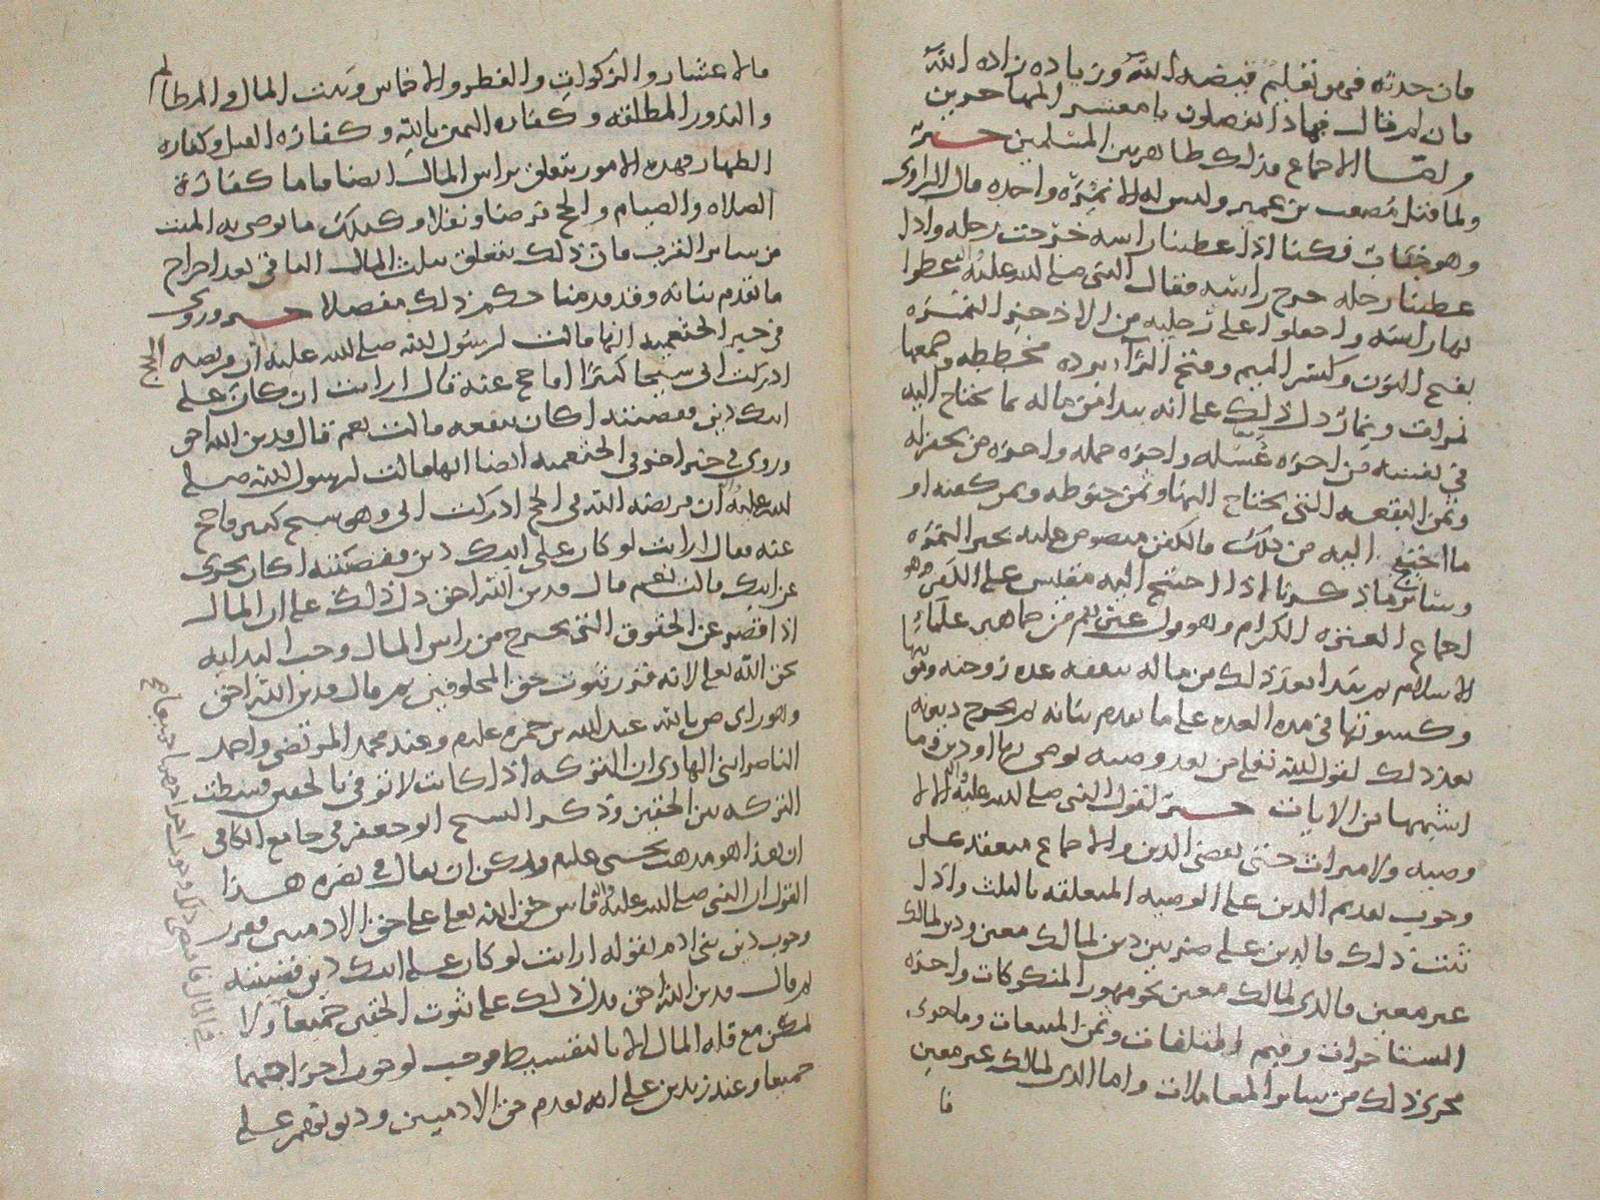 فان حدته فهو تفليم قبضه الله وزياده زاده الله
فان امر قال فماذا تفصلون يا معشر المهاجرين
ولقسا الاجماع فذلك ظاهر بين المسلمين خبر
ولما قتل مصعب بن عمير وليس له الا نمرة واحده قال الراوى
وهو خباب فكنا اذا غطينا راسه خرجت رجله واذا
غطينا رجله خرج راسه فقال النبى صلى لله عليه غطوا
بها راسه واجعلوا على رجليه من الاذخر النمره
بفتح النون وكسر الميم وفتح الراء برده مخططه وجمعها
نمرات ونمار دل ذلك على انه يبدا من ماله بما يحتاج اليه
فى نفسه من اجره غسله واجره حمله واجره من يحفر له
وثمن البقعه التى يحتاج اليها وثمن حنوطه وثمن كفنه او
ما احتيج اليه من ذلك فالكفن منصوص عليه بخبر النمره
وسائر ما ذكرنا اذا احتيج اليه مقيس على الكفن وهو
اجماع العتره الكرام وهو قول غيرهم من جماهير علماء
الاسلام ثم يبدا بعد ذلك من ماله بنفقه عده زوجته
وكسوتها فى مده العده على ما تقدم بيانه ثم يخرج ديونه
بعد ذلك لقول الله تعالى من بعد وصيه يوصى بها او دين وما
اشبهها من الايات خبر لقول النبى صلى لله عليه لا
وصيه ولا ميراث حتى يقضى الدين والاجماع منعقد على
وجوب تقديم الدين على الوصيه المتعلقه بالثلث واذا
ثبت ذلك فالدين على ضربين دين لمالك معين ودين لمالك
غير معين فالذى لمالك معين نحو مهور المنكوحات واجره
المستاجرات وقيم المتلفات وثمن المبيعات وما جرى
مجرى ذلك من سائر المعاملات واما الذى لمالك غير معين
فا
فالاعشار والزكوات والفطر والاخماس وبيت المال والمظالم
والنذور المطلقه وكفاره اليمين بالله وكفاره القتل وكفاره
الظهار فهذه الامور تتعلق براس المال ايضا فاما كفارة
الصلاه والصيام والحج فرضا ونفلا وكذلك ما يوصى به الميت
من سائر القرب فان ذلك يتعلق بثلث المال الباقى بعد اخراج
ما تقدم بيانه وقد قدمنا حكم ذلك مفصلا خبر وروى
فى خبر الخثعميه انها قالت لرسول الله صلى لله عليه ان فريضه الحج
ادركت ابى شيخا كبيرا افاحج عنه قال ارايت ان كان على
ابيك دين فقضيتيه اكان ينفعه قالت نعم قال فدين الله احق
وروى فى خبر اخر فى الخثعميه ايضا انها قالت لرسول الله صلى
لله عليه ان فريضه الله فى الحج ادركت ابى وهو شيخ كبير فاحج
عنه فقال ارايت لو كان على ابيك دين فقضيته اكان يجزى
عن ابيك قالت نعم قال فدين الله احق دل ذلك على ان المال
اذا قصر عن الحقوق التى تخرج من راس المال وجب البدايه
بحق الله تعالى لانه قدر ثبوت حق المخلوقين ثم قال فدين الله احق
وهو راى ص بالله عبدالله بن حمزه عليم وعند محمد المرتضى واحمد
الناصر ابنى الهادى ان التركه اذا كانت لا توفى بالحقين قسطت
التركه بين الحقين وذكر الشيخ ابو جعفر فى جامع الكافى
ان هذا هو مذهب يحيى عليم ويمكن ان يقال فى نصره هذا
القول ان النبى صلى لله عليه قاس حق الله تعالى على حق الادميين فقرر
وجوب دين بنى ادم بقوله ارايت لو كان على ابيك دين فقضيتيه
ثم قال فدين الله احق فدل ذلك على ثبوت الحقين جميعا ولا
يمكن مع قله المال الا بالتقسيط فوجب لوجوب اخراجهما
جميعا وعند زيد بن على انه يقدم حق الادميين ودين توفر على